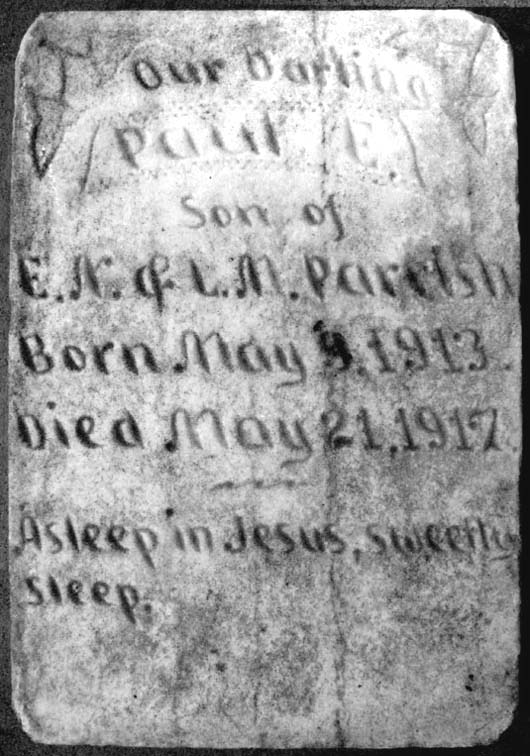 Our Darling
Paul E.
Son of
E.N. & L.M. Parrish
Born May 9, 1913.
Died May 21, 1917.
Asleep in Jesus, sweetly
sleep.